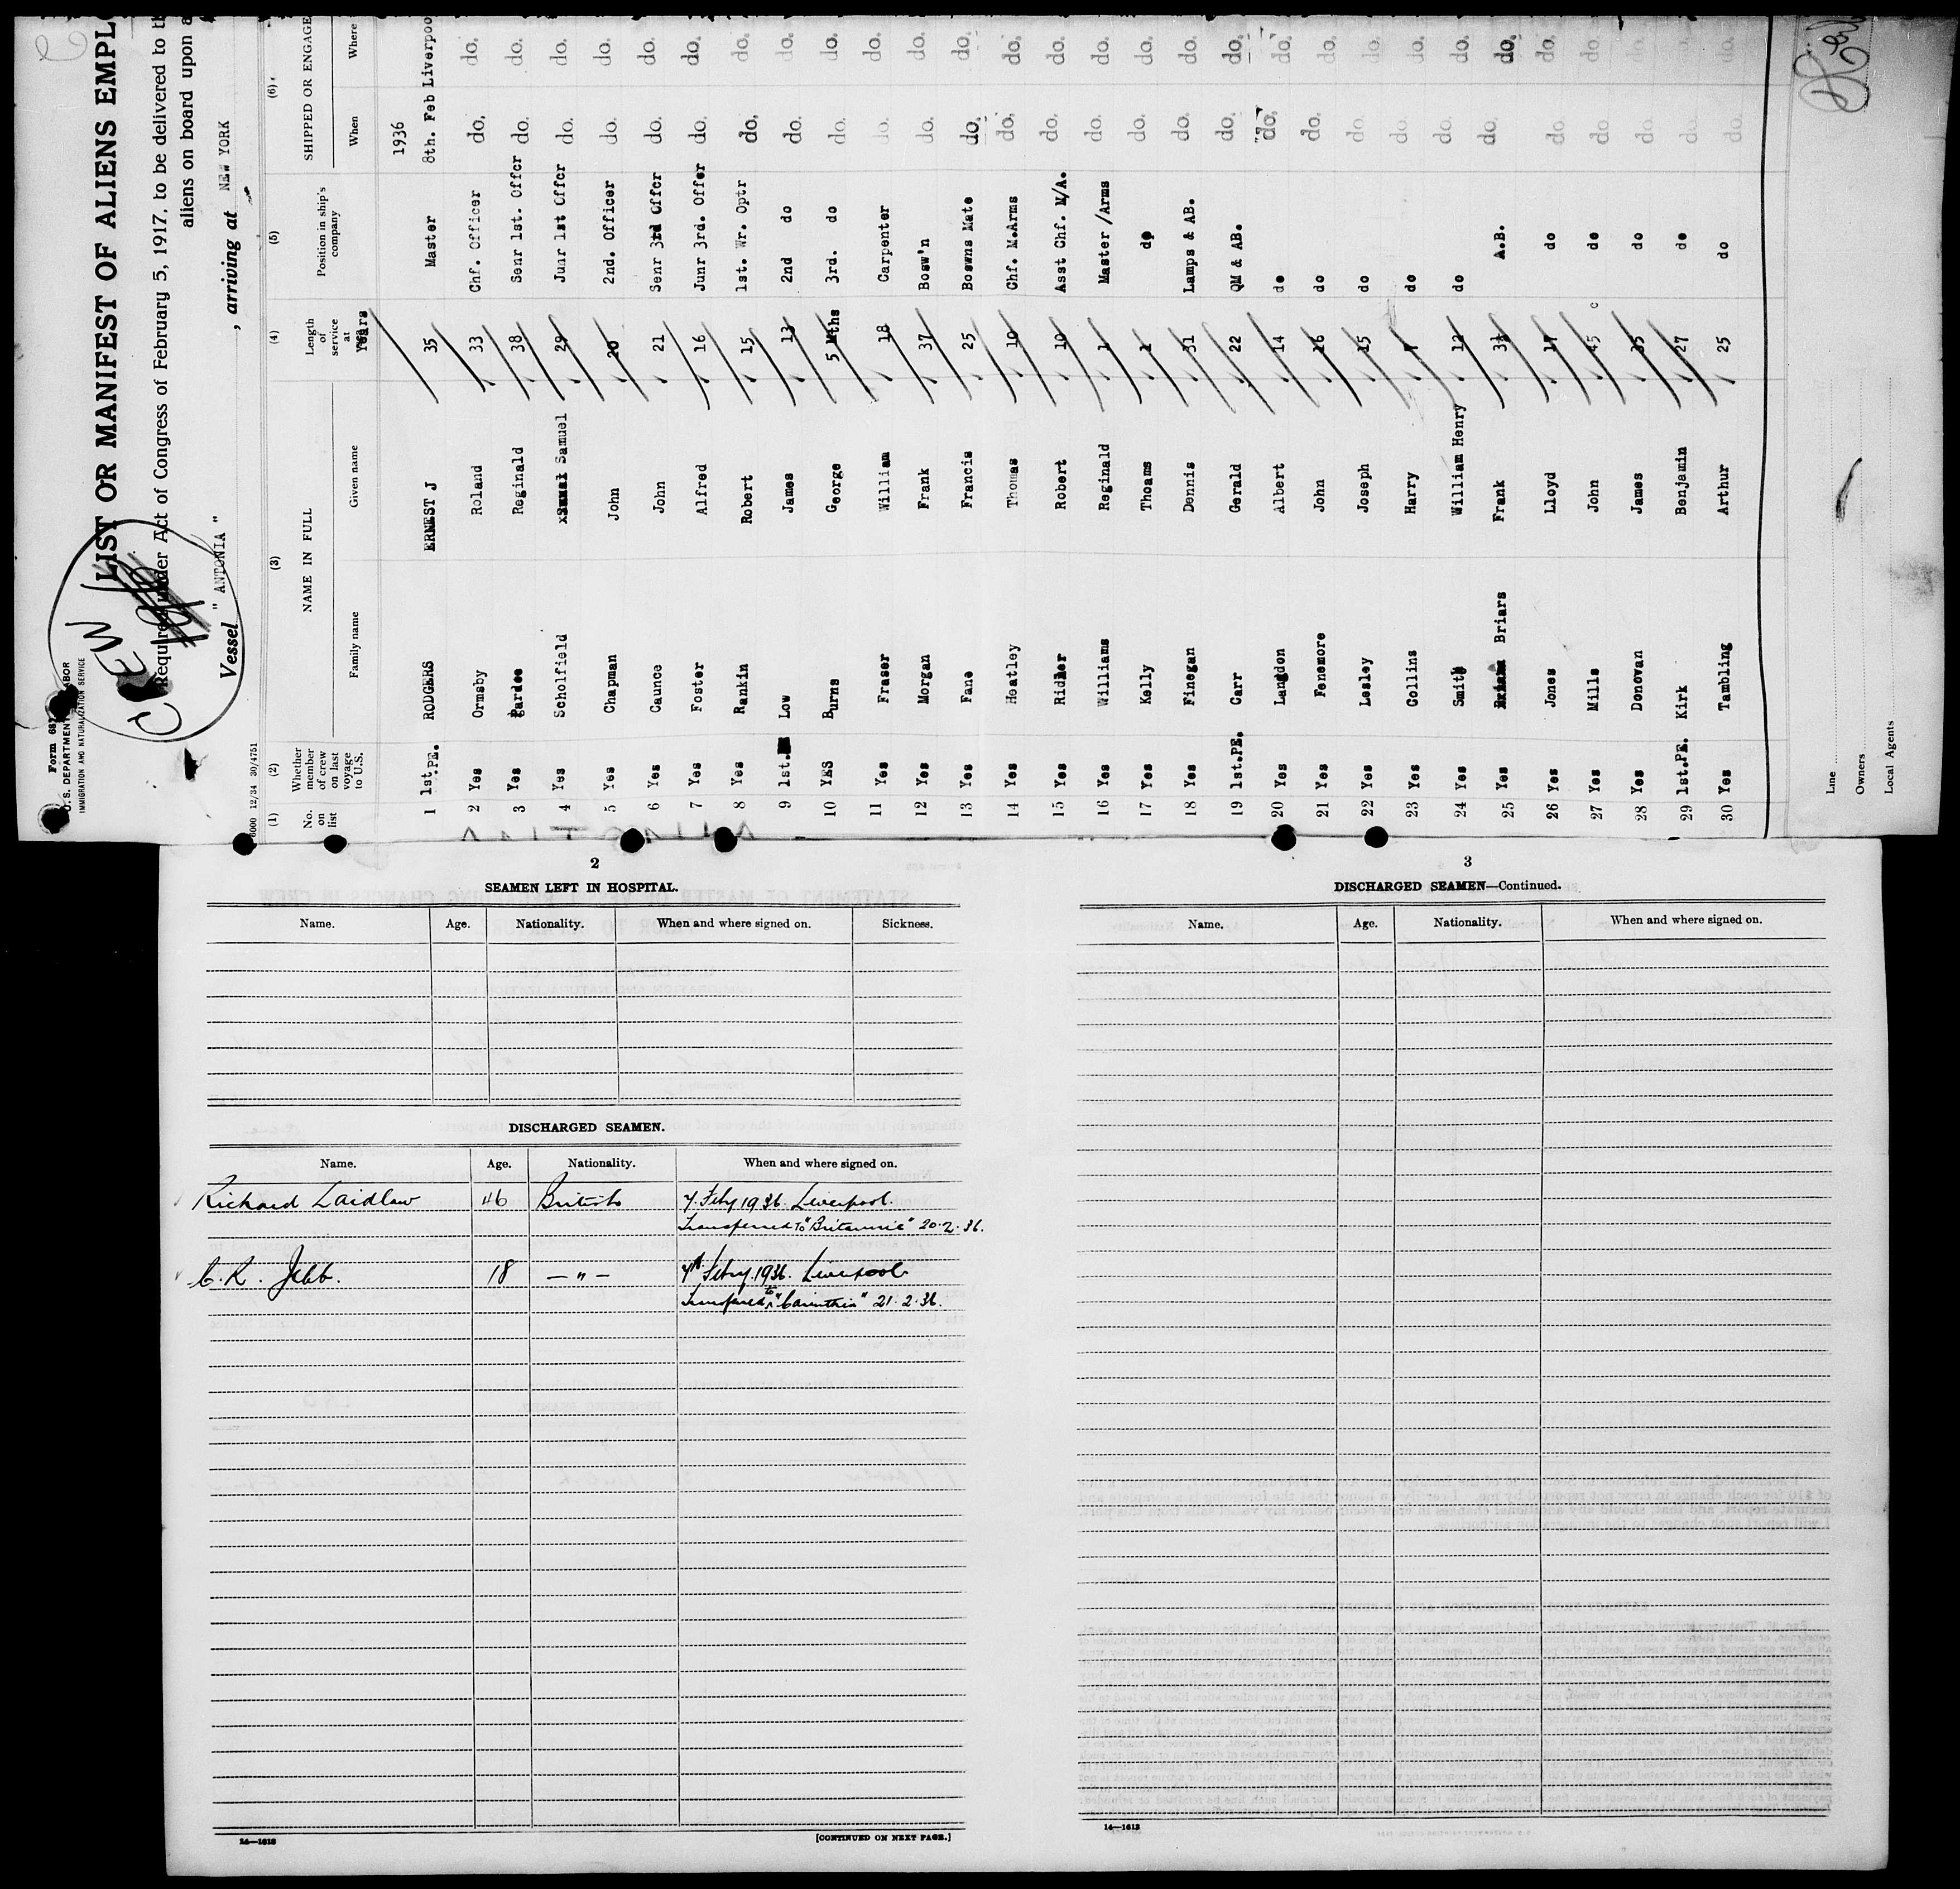 Form 687
U. S. DEPARTMENT LABOR
IMMIGRATION AND NATURALIZATION SERVICE
CREW
LIST OR MANIFEST OF ALIENS EMPLO
Required under Act of Congress of February 5, 1917, to be delivered to th
aliens on board upon a
Vessel " ANTONIA " , arriving at NEW YORK
6000 12/34 30/4751
(1) (2) (3) (4) (5) (6)
No. on list
Whether member of crew on last voyage to U.S.
NAME IN FULL
Family name Given name
Length of service at Years
Position in ship's company
SHIPPED OR ENGAGE
When Where
1936
1 1st.PE. RODGERS ERNEST J 35 Master 8th. Feb Liverpoo
2 Yes Ormsby Roland 33 Chf. Officer do. do.
3 Yes Pardee Reginald 38 Senr 1st. Offcr do. do.
4 Yes Scholfield Samuel 29 Junr 1st Offcr do. do.
5 Yes Chapman John 20 2nd. Officer do. do.
6 Yes Caunce John 21 Senr 3rd Offcr do. do.
7 Yes Foster Alfred 16 Junr 3rd. Offer do. do.
8 Yes Rankin Robert 15 1st. Wr. Optr do. do.
9 1st. Low James 13 2nd do do. do.
10 YES Burns George 5 Mths 3rd. do do. do.
11 Yes Fraser William 18 Carpenter do. do.
12 Yes Morgan Frank 37 Bosw'n do. do.
13 Yes Fane Francis 25 Boswns Mate do. do.
14 Yes Heatley Thomas 10 Chf. M.Arms do. do.
15 Yes Robert 10 Asst Chf. M/A. do. do.
16 Yes Williams Reginald 1 Master /Arms do. do.
17 Yes Kelly Thoams 1 do do. do.
18 Yes Finegan Dennis 31 Lamps & AB. do. do.
19 1st.PE. Carr Gerald 22 QM & AB. do. do.
20 Yes Langdon Albert 14 do do. do.
21 Yes Fenemore John 16 do do. do.
22 Yes Lesley Joseph 15 do do. do.
23 Yes Collins Harry 7 do do. do.
24 Yes Smith William Henry 12 do do. do.
25 Yes Briars Frank A.B. do. do.
26 Yes Jones Lloyd 17 do do. do.
27 Yes Mills John 45 do do. do.
28 Yes Donovan James 35 do do. do.
29 1st.PE. Kirk Benjamin 27 do do. do.
30 Yes Tambling Arthur 25 do do. do.
Line
Owners
Local Agents
2
SEAMEN LEFT IN HOSPITAL.
Name. Age. Nationality. When and where signed on. Sickness.
DISCHARGED SEAMEN.
Name. Age. Nationality. When and where signed on.
Richard Laidlaw 46 British 7. Feby 1936. Liverpool.
Transferred to "Britannic" 20.2.36.
C. R. Jebb. 18 — " — 7th Feby. 1936. Liverpool
Transfered to "Carinthia" 21.2.36.
14—1613
[CONTINUED ON NEXT PAGE.]
3
DISCHARGED SEAMEN—Continued.
Name. Age. Nationality. When and where signed on.
14—1613